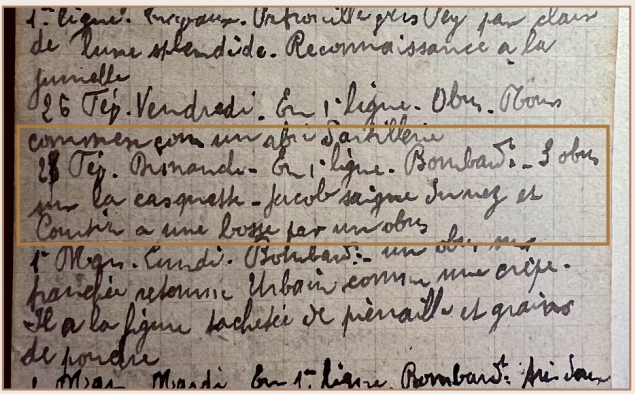 1re ligne. Travaux. Patrouille gris Pey par clair
de lune splendide. Reconnaissance à la
jumelle
26 Fév. Vendredi. En 1re ligne. Obus. Nous
commençons un abri d'artillerie
28 Fév. Dimanche - En 1re ligne. Bombardt. - 3 obus
sur la casquette - Jacob saigne du nez et
a une bosse par un obus
1er Mars. Lundi. Bombardt. - un obus sur
tranchée retourne Urbain comme une crêpe.
Il a la figure tachetée de pierraille et grains
de poudre
Mars Mardi En 1re ligne. Bombardt.